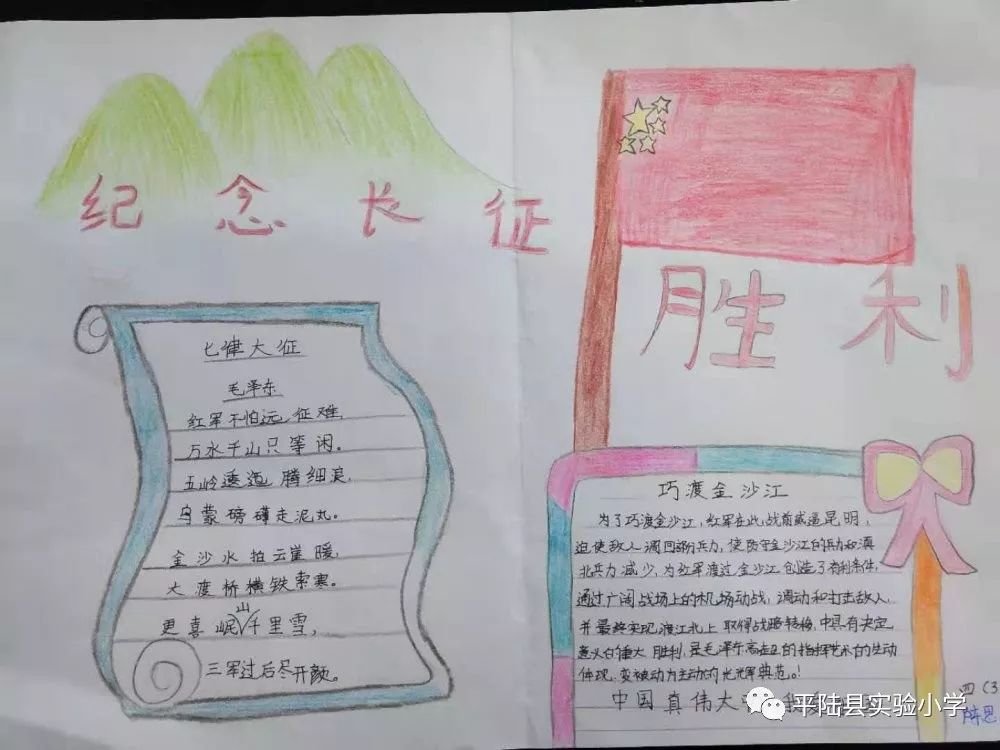 纪念长征
胜利
七律大征
毛泽东
红军不怕远征难,
万水千山只等闲。
五岭逶迤腾细浪,
乌蒙磅礴走泥丸。
金沙水拍云崖暖,
大渡桥横铁索寒。
更喜岷山千里雪,
三军过后尽开颜。
巧渡金沙江
为了巧渡金沙江,红军在此战前威逼昆明,
迫使敌人调回部分兵力,使防守金沙江的兵力和滇
北兵力减少,为红军渡过金沙江创造了有利条件,
通过广阔战场上的机场动战,调动和打击敌人,
并最终实现渡江北上取得战略转移中具有决定
意义的重大胜利,是毛泽东高超的指挥艺术的生动
体现,变被动为主动的光辉典范。!
中国真伟大
四(3
陈思
平陆县实验小学